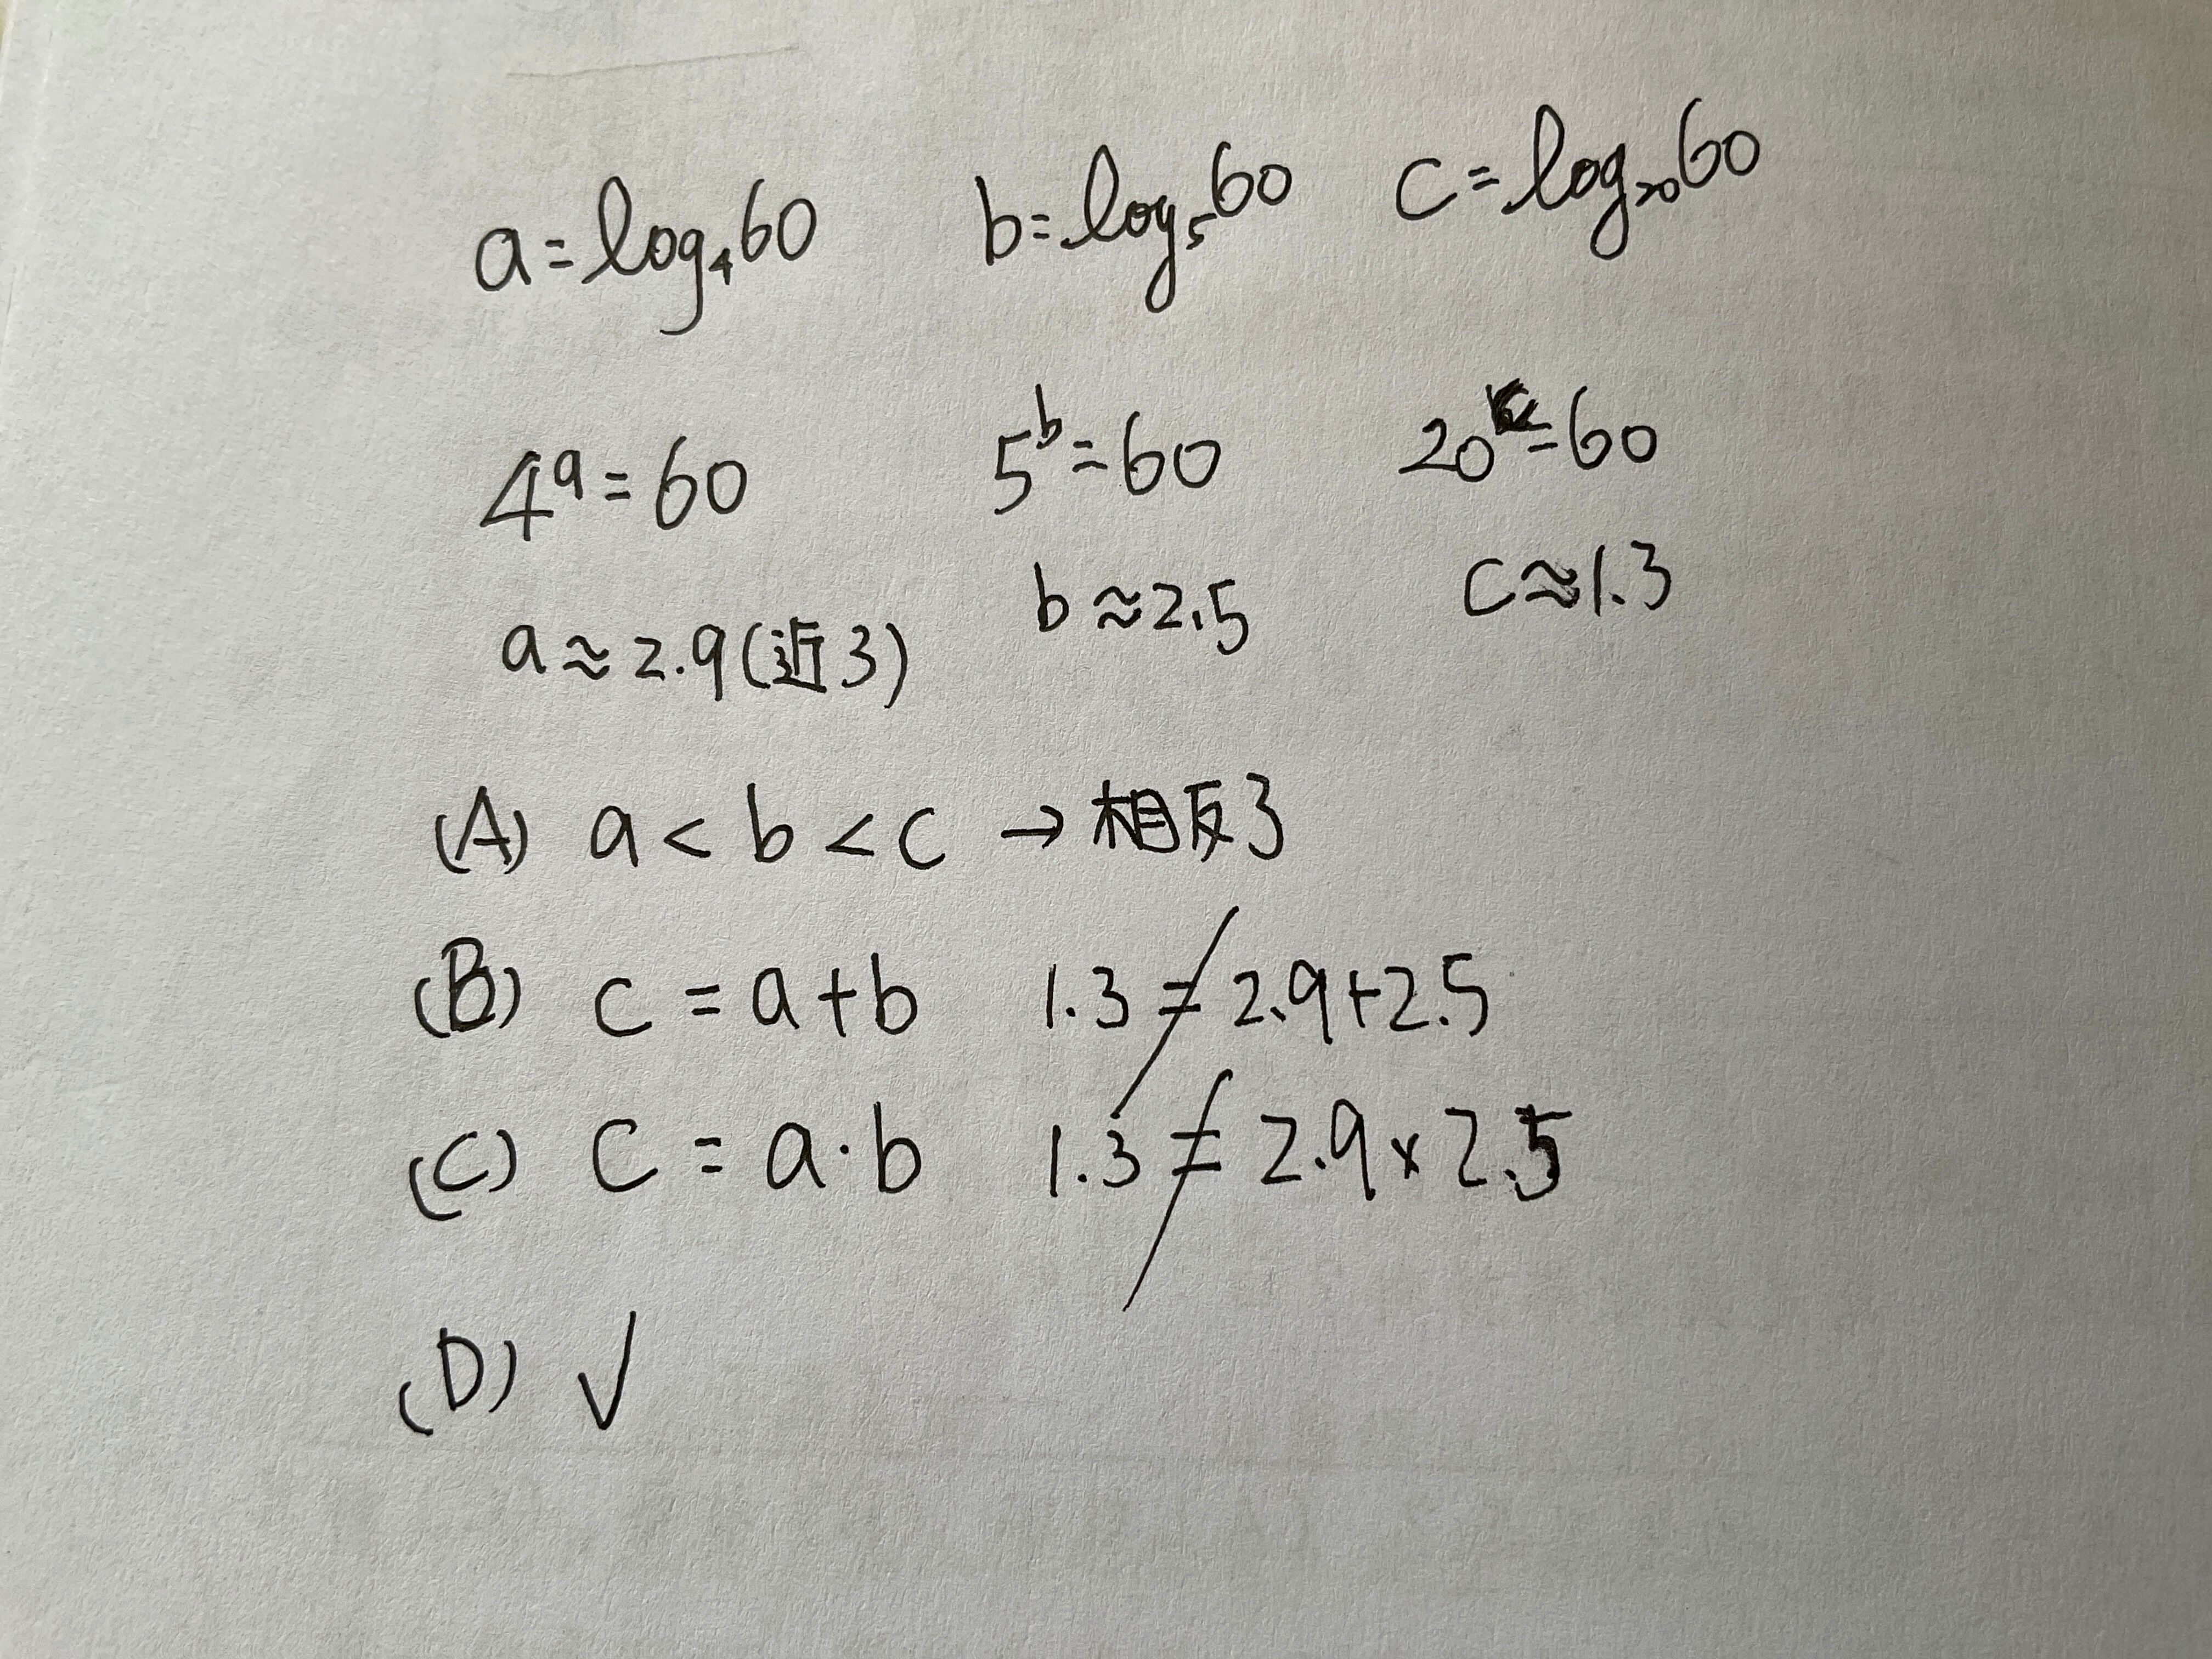 a=log₄60 b=log₅60 c=log₂₀60
4ᵃ=60 5ᵇ=60 20ᶜ=60
a≈2.9(近3) b≈2.5 c≈1.3
(A) a<b<c → 相反了
(B) c=a+b 1.3≠2.9+2.5
(C) c=a·b 1.3≠2.9×2.5
(D) √